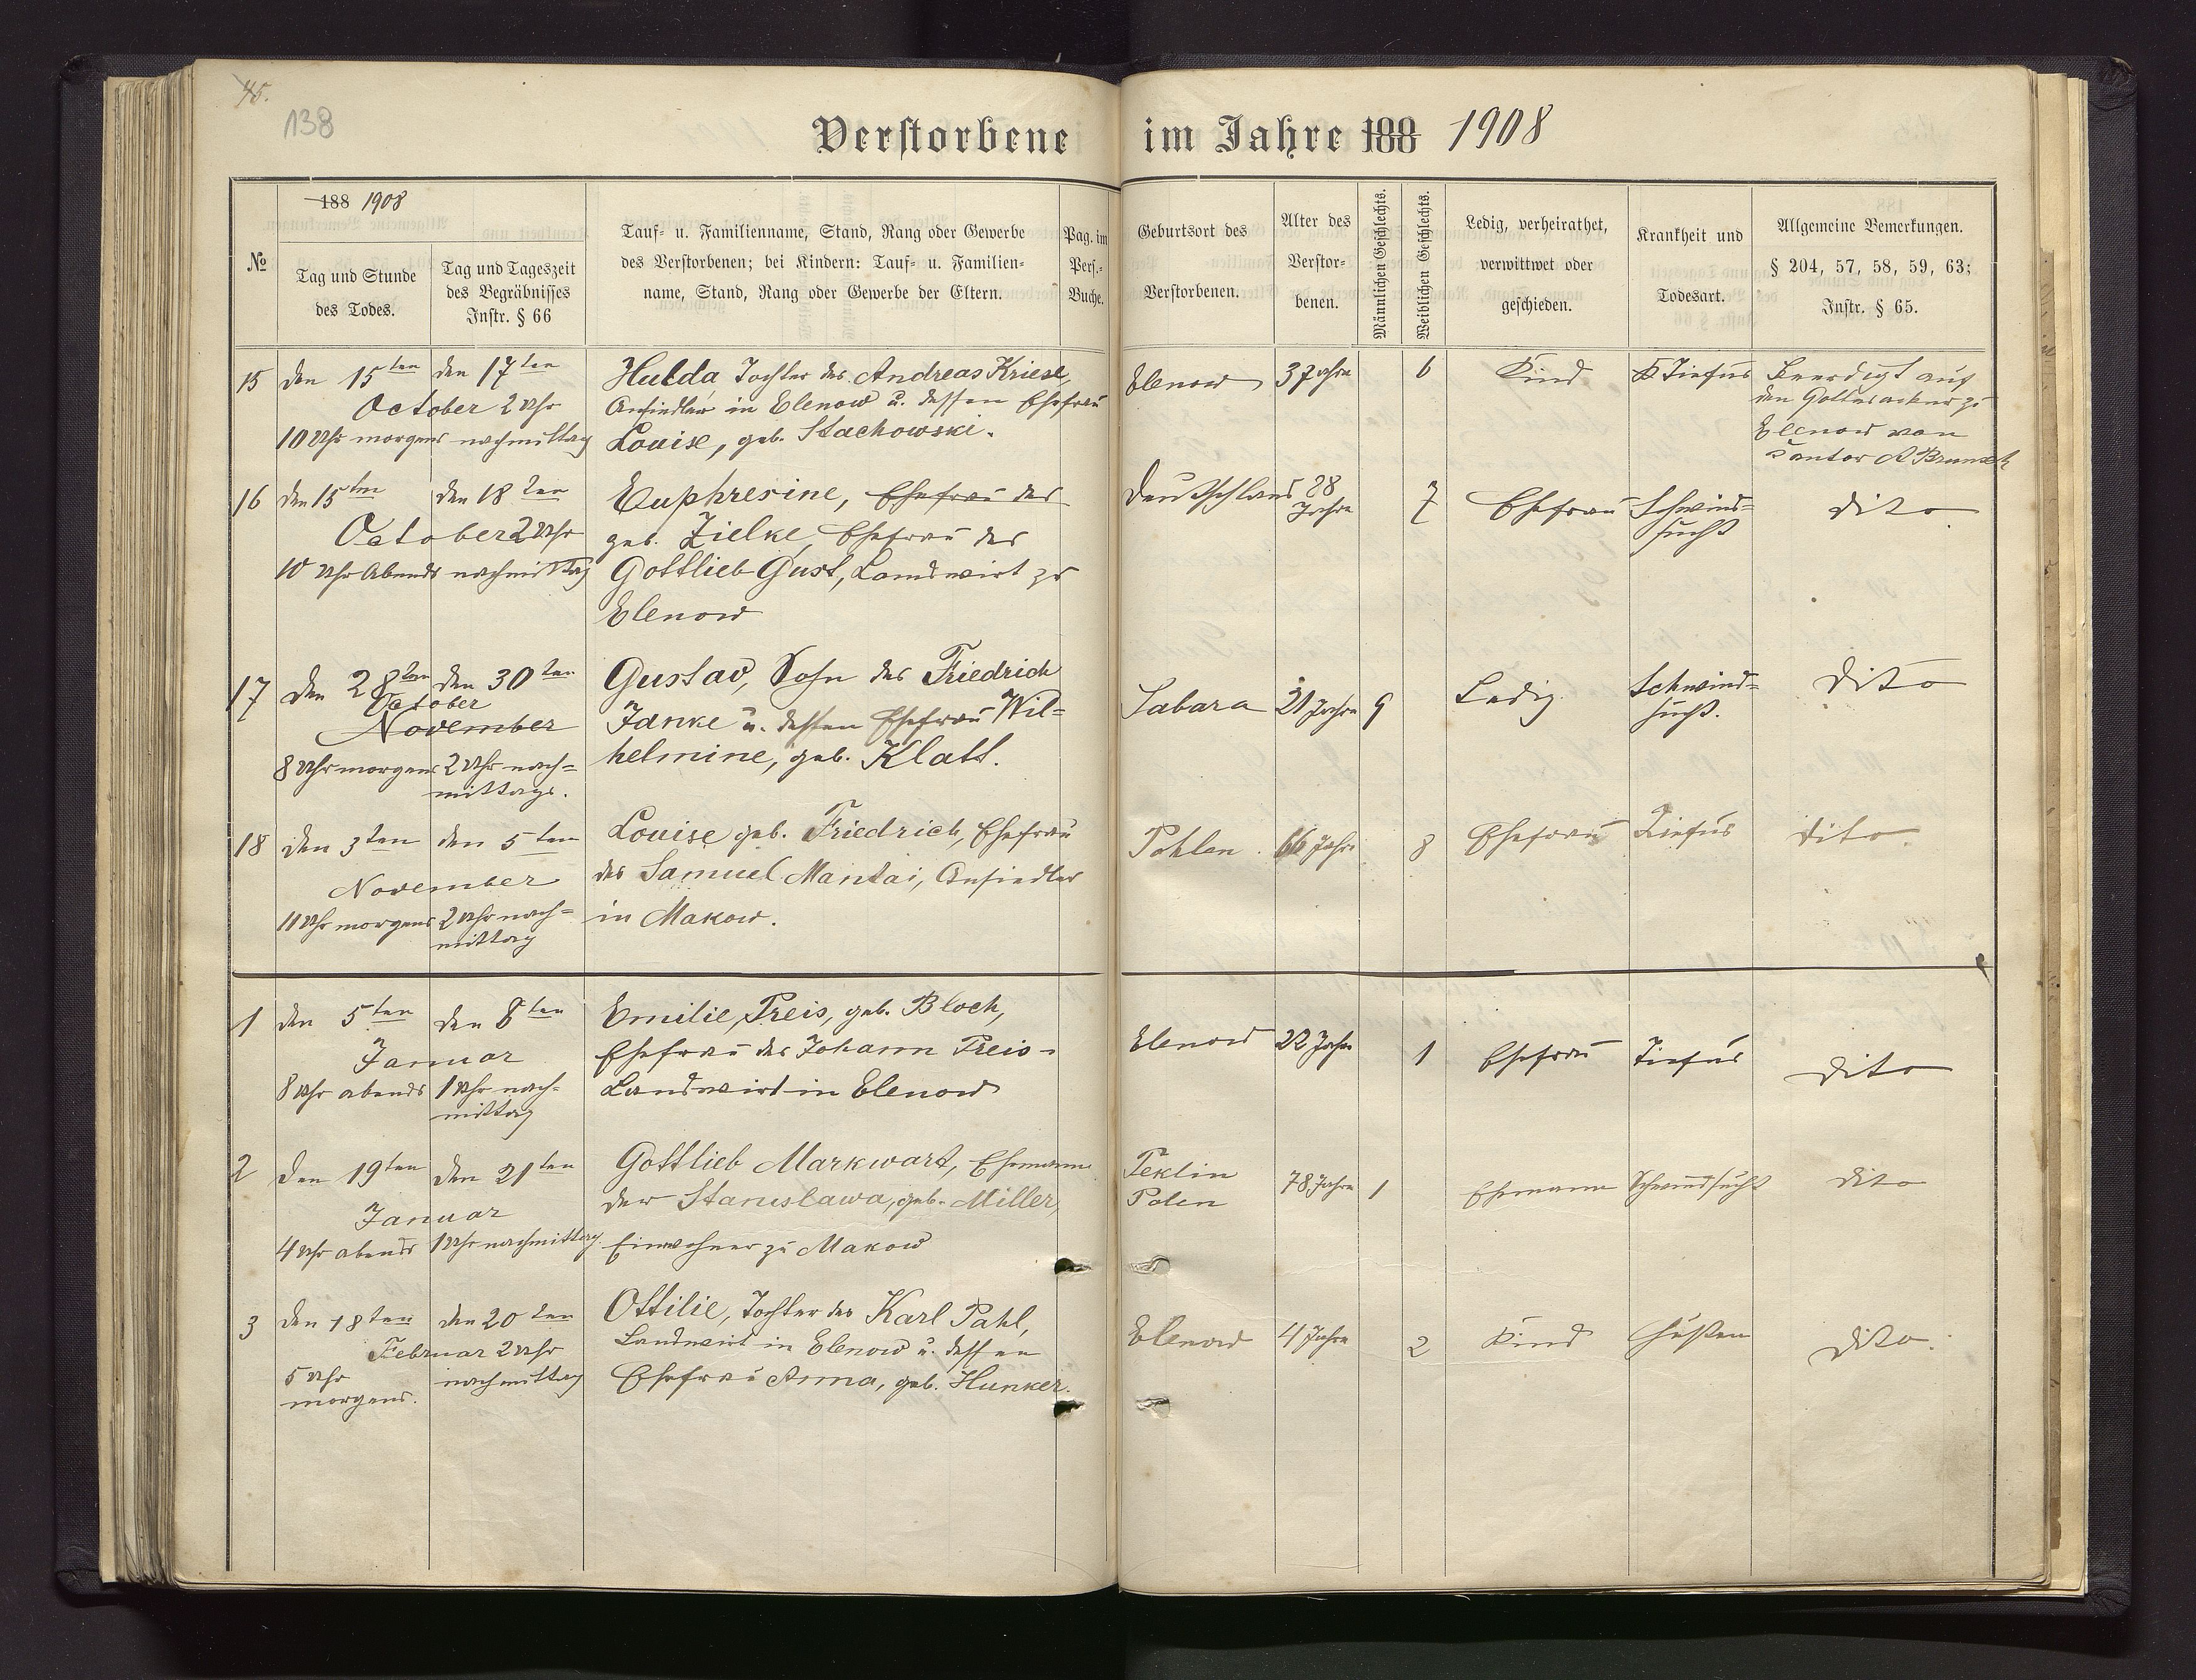 45.
138
Verstorbene im Jahre 188 1908
№
188 1908
Tag und Stunde
des Todes.
Tag und Tageszeit
des Begräbnisses
Instr. § 66
Tauf- u. Familienname, Stand, Rang oder Gewerbe
des Verstorbenen; bei Kindern: Tauf- u. Familien-
name, Stand, Rang oder Gewerbe der Eltern.
Pag. im
Pers.-
Buche.
Geburtsort des
Verstorbenen.
Alter des
Verstor-
benen.
Männlichen Geschlechts.
Weiblichen Geschlechts.
Ledig, verheirathet,
verwittwet oder
geschieden.
Krankheit und
Todesart.
Allgemeine Bemerkungen.
§ 204, 57, 58, 59, 63;
Instr. § 65.
15 den 15ten den 17ten
October 2 Uhr
10 Uhr morgens nachmittag
Hulda Tochter des Andreas Kriese,
Ansiedler in Elenow u. dessen Ehefrau
Louise, geb. Stachowski.
Elenow 3 Jahre 6 Kind Tiefus
Beerdigt auf
den Gottesacker zu
Elenow von
Cantor A Brunsch
16 den 15ten den 18ten
October 2 Uhr
10 Uhr Abends nachmittag
Euphresine, Ehefrau des
geb. Zielke, Ehefrau des
Gottlieb Gust, Landwirt zu
Elenow
Deutschland 28
Jahre
7 Ehefrau Schwind=
sucht
dito
17 den 28ten den 30ten
October
November
8 Uhr morgens 2 Uhr nach=
mittags.
Gustav, Sohn des Friedrich
Janke u. dessen Ehefrau Wil=
helmine, geb. Klatt.
Sabara 21 Jahre 9 Ledig Schwind=
sucht.
dito
18 den 3ten den 5ten
November
11 Uhr morgens 2 Uhr nach=
mittag
Louise geb. Friedrich, Ehefrau
des Samuel Mantai, Ansiedler
in Makow.
Pohlen 66 Jahre 8 Ehefrau Tiefus dito.
1 den 5ten den 8ten
Januar
8 Uhr abends 1 Uhr nach=
mittag
Emilie Preis, geb. Bloch,
Ehefrau des Johann Preis=
Landwirt in Elenow
Elenow 22 Jahre 1 Ehefrau Tiefus dito
2 den 19ten den 21ten
Januar
4 Uhr abends 1 Uhr nachmittag.
Gottlieb Markwart, Ehemann
der Stanislawa, geb. Miller,
Einwohner zu Makow
Teklin
Polen
78 Jahre 1 Ehemann Schwindsucht dito
3 den 18ten den 20ten
Februar 2 Uhr
5 Uhr nachmittag
morgens.
Ottilie, Tochter des Karl Pahl,
Landwirt in Elenow u. dessen
Ehefrau Anna, geb. Hunker.
Elenow 4 Jahre 2 Kind Husten dito.